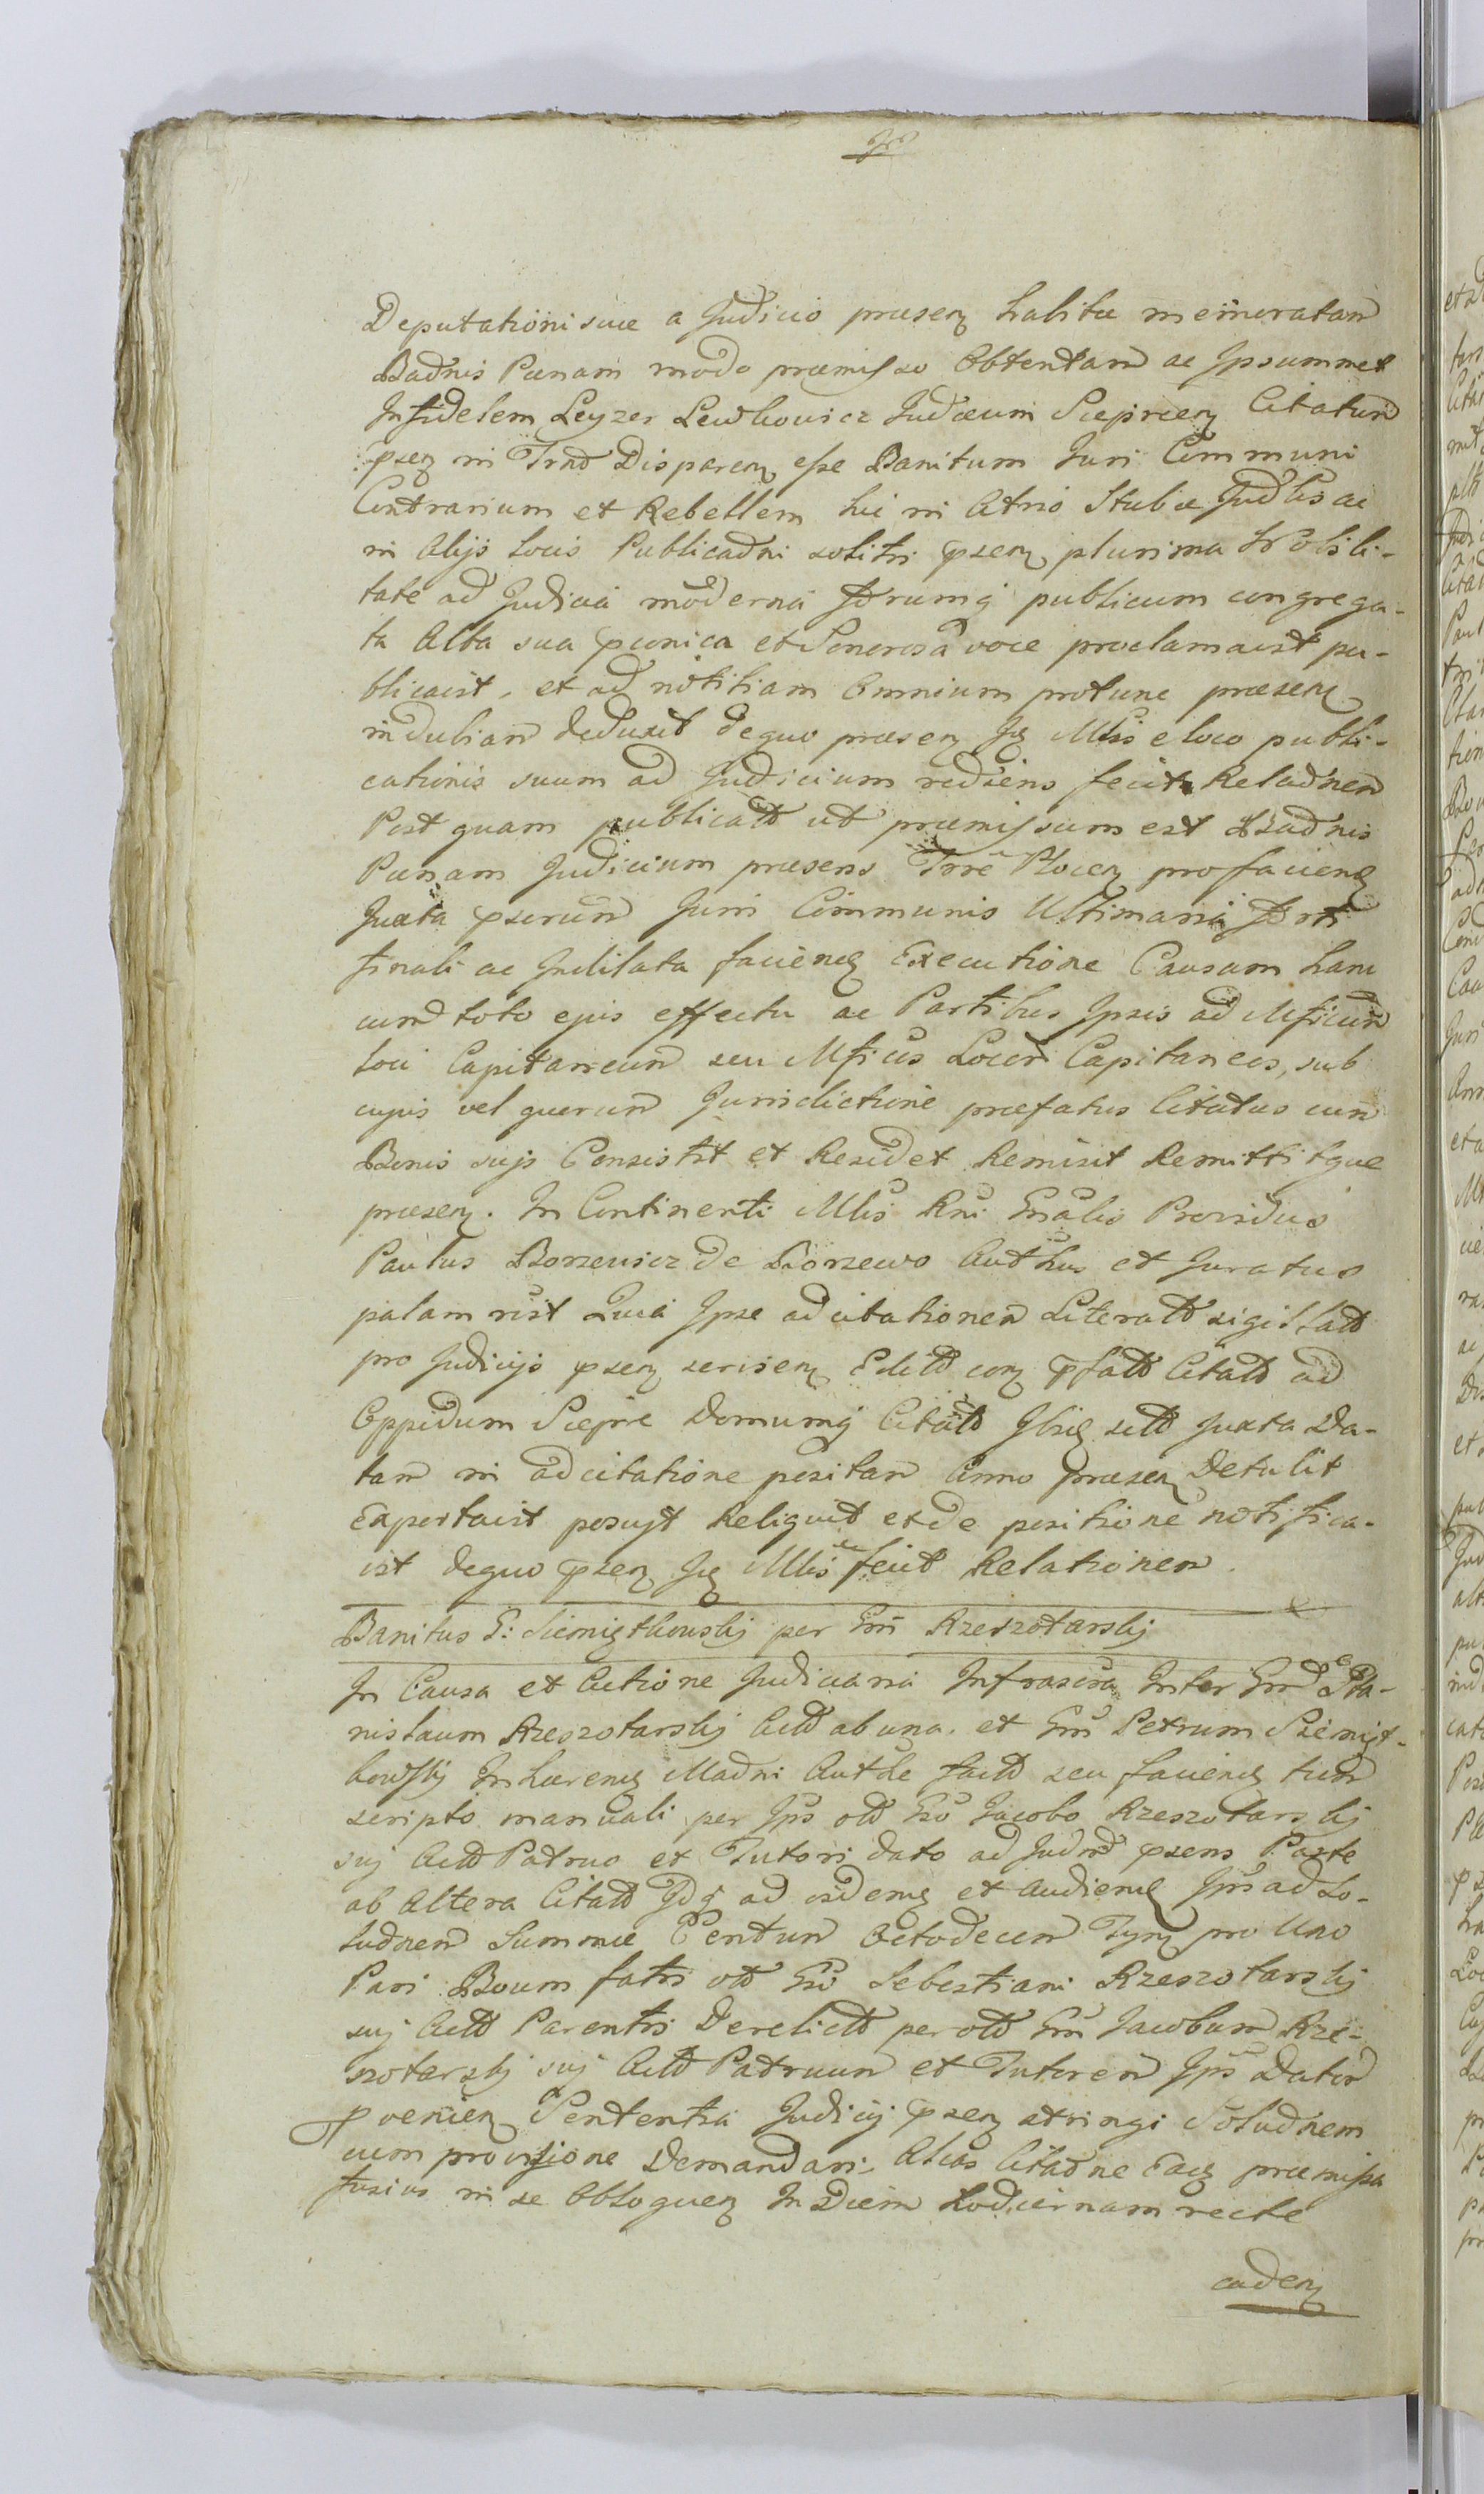 Deputationi suae a Judicio praesen habitae memoratam
Badnis Paenam modo praemisso Obtentam ac Ipsummet
Infidelem Leyzer Lewkowicz Judaeum Sieprcen Citatum
psen in Trmo Disparen esse Banitum Juri Communi
Contrarium et Rebellem hic in Atrio Stubae Judlis ac
in Alijs locis Publicadni solitis psen plurima Nobili-
tate ad Judicia moderna Forumq publicum congrega-
ta Alta sua pconica et Sonorosa voce proclamavit pu-
blicavit, et ad notitiam Omnium protunc praesen
indubiam deduxit dequo praesen Jq Mlis e loco publi-
cationis suum ad Judicium rediens fecit Reladnem
Post quam publicatt ut praemissum est Badnis
Paenam Judicium praesens Trre Plocen pro facienq
Juxta pscrum Juris Communis Ultimaria Forti
finali ac Indilata facienq Executione Causam hanc
cum toto ejus effectu ac Partibus Ipsis ad Mficum
loci Capitaneum seu Mficos Locor Capitaneos, sub
cujus vel quorum Jurisdictione praefatus Citatus cum
Bonis sujs Consistit et Residet Remisit Remittitque
praesen. In Continenti Mlis Rni Gnalis Providus
Paulus Borzewicz De Borzewo Authus et Juratus
palam rcst Quia Ipse adcitationem Literatt sigillatt
pro Judicijs psen servien Editt con pfatt Citatt ad
Oppidum Sieprc Domumq Citatt Ibiq sitt Juxta Da-
tam in adcitatione positam Anno praesen Detulit
Exportavit posuyt Reliquit et de positione notifica-
vit dequo psen Jq Mlis fecit Relationem.
Banitus G: Siemiątkowskj per Gm Rzeszotarskj
In Causa et Actione Judiciaria Infrascra Inter Gm Sta-
nislaum Rzeszotarskj Actt ab una. et Gm Petrum Siemiąt-
kowskj Inhaerenq Madni Authe factt seu facienq tum
scripto manuali per Ips ott Gso Jacobo Rzeszotarskj
suj Actt Patruo et Tutori dato ad Judm psens Parte
ab altera Citatt Idq ad videnq et Audienq Ips ad so-
ludnem Summae Centum Octodecem Tynf pro Uno
Pari Boum fatis ott Gso Sebestiani Rzeszotarskj
suj Actt Parentis Derelictt per ott Gm Jacobum Rze-
szotarskj suj Actt Patruum et Tutorem Ips Dator
pvenien Sententia Judicij psen stringi Soludnem
cum provisione Demandari. Alias Citadne Eaq praemissa
fusius in se Obloquen In Diem hodiernam recte
caden